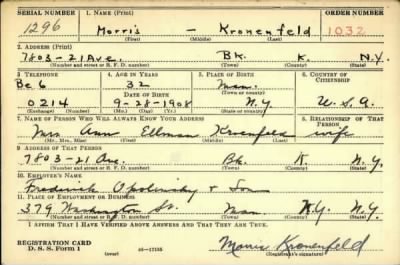 SERIAL NUMBER 1. NAME (Print) ORDER NUMBER
1296 Morris — Kronenfeld 1032
(First) (Middle) (Last)
2. ADDRESS (Print)
7803-21 Ave. Bk. K. N.Y.
(Number and street or R. F. D. number) (Town) (County) (State)
3. TELEPHONE 4. AGE IN YEARS 5. PLACE OF BIRTH 6. COUNTRY OF CITIZENSHIP
Be 6 32 Man.
DATE OF BIRTH (Town or county)
0214 9-28-1908 N.Y. U.S.A.
(Exchange) (Number) (Mo.) (Day) (Yr.) (State or country)
7. NAME OF PERSON WHO WILL ALWAYS KNOW YOUR ADDRESS 8. RELATIONSHIP OF THAT PERSON
Mrs Ann Ellman Kronenfeld wife
(Mr., Mrs., Miss) (First) (Middle) (Last)
9. ADDRESS OF THAT PERSON
7803-21 Ave. Bk. K. N.Y.
(Number and street or R. F. D. number) (Town) (County) (State)
10. EMPLOYER'S NAME
Frederick Opolinsky + Son
11. PLACE OF EMPLOYMENT OR BUSINESS
379 Washington St. Man N.Y. N.Y.
(Number and street or R. F. D. number) (Town) (County) (State)
I AFFIRM THAT I HAVE VERIFIED ABOVE ANSWERS AND THAT THEY ARE TRUE.
REGISTRATION CARD
D. S. S. Form 1 (over) 16-17105 Morris Kronenfeld
(Registrant's signature)